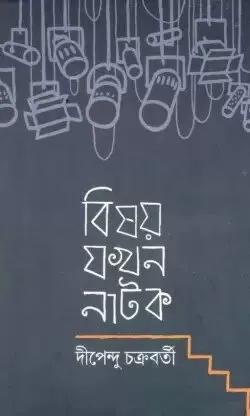 বিষয়
যখন
নাটক
দীপেন্দু চক্রবর্তী